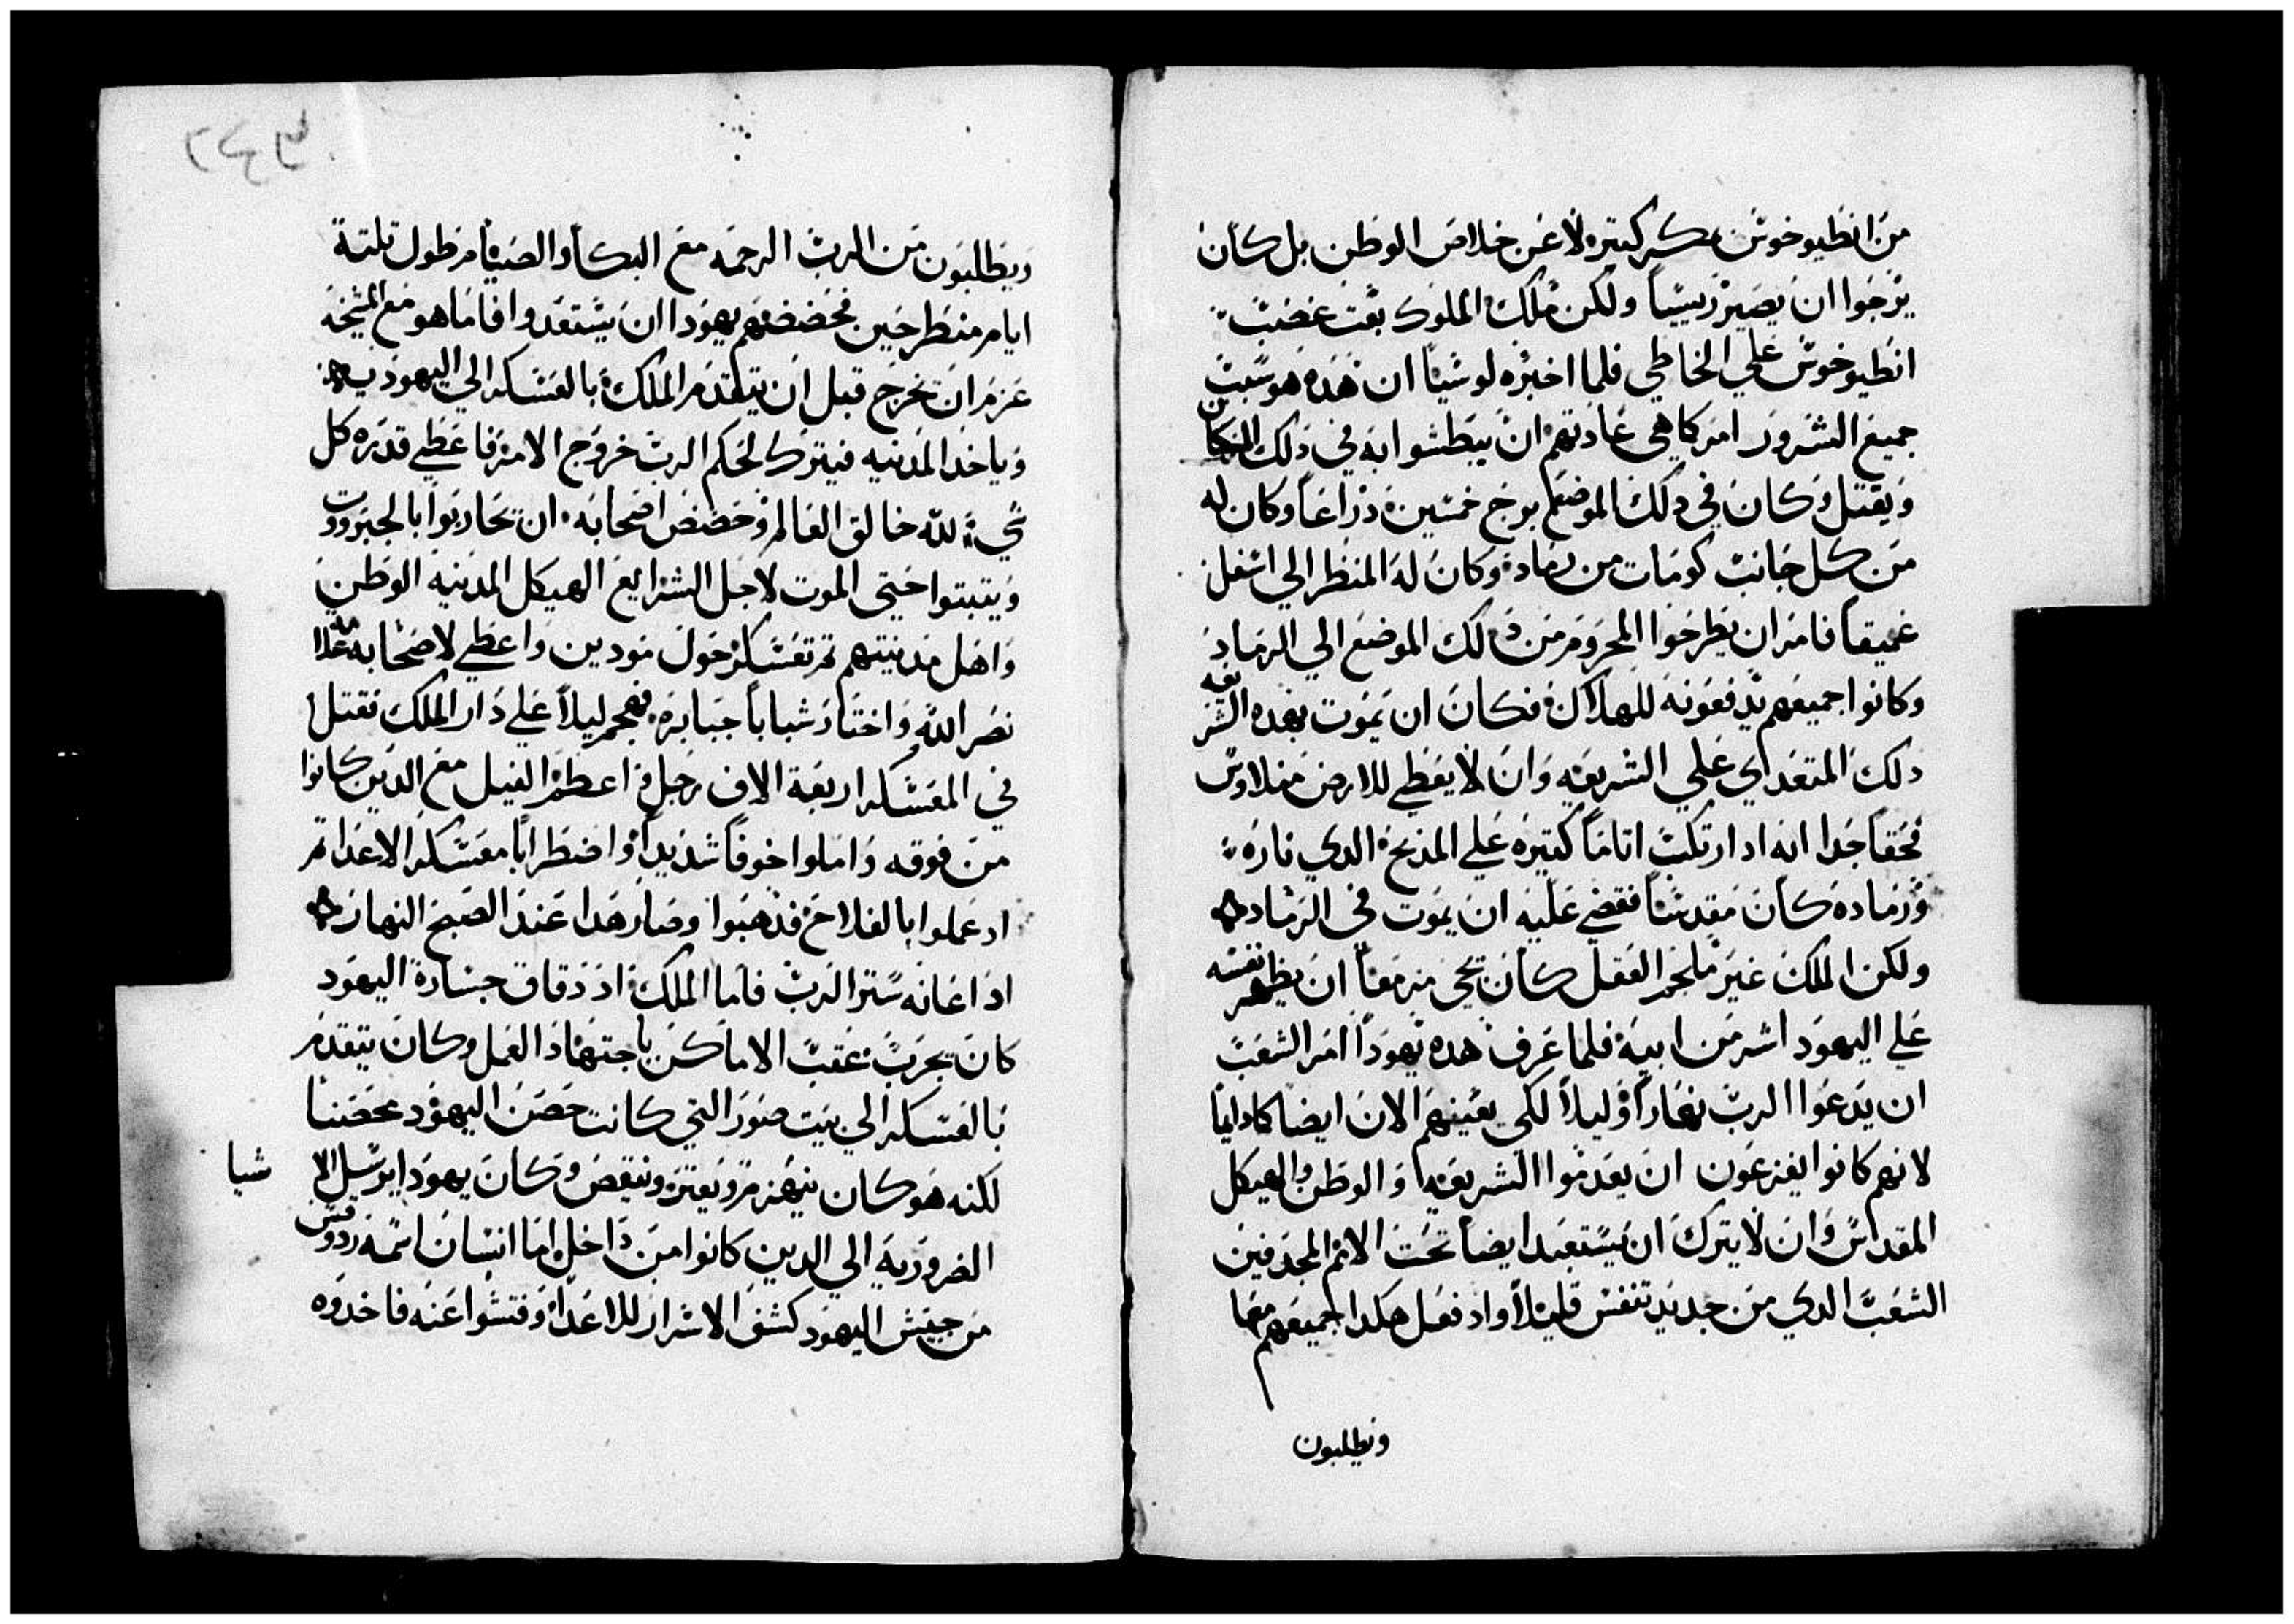 من انطيوخوس بمكر كتيره لا عن خلاص الوطن بل كان
يرجوا ان يصير رييسا ولكن ملك الملوك بعت غضب
انطيوخوس علي الخاطي فلما اخبره لوشيا ان هده هو سبب
جميع الشرور امر كما هي عادتهم ان يبطشوا به في دلك المكان
ويقتل وكان في دلك الموضع برج خمسين دراعا وكان له
من كل جانب كومات من رماد وكان له المنظر الي اسفل
عميقا فامر ان يطرحوا المحروم من دلك الموضع الي الرماد
وكانوا جميعهم يدفعونه للهلاك فكان ان يموت بهده الشريعه
دلك المتعداي علي الشريعه وان لا يعطي للارض منلاوس
فحقا جدا انه اد ارتكب اتاما كتيره علي المدبح الدي ناره
ورماده كان مقدسا فقضي عليه ان يموت في الرماد
ولكن الملك غير ملجم العقل كان يجي مزمعا ان يظهر نفسه
علي اليهود اشر من ابيه فلما عرف هده يهودا امر الشعب
ان يدعوا الرب نهارا وليلا لكي يعينهم الان ايضا كما دايما
لانهم كانوا يفزعون ان يعدموا الشريعه والوطن والهيكل
المقدس وان لا يترك ان يستعبد ايضا تحت الامم المجدفين
الشعب الدي من جديد تنفس قليلا واد فعل هكدا جميعهم معا
ويطلبون
ويطلبون من الرب الرحمه مع البكا والصيام طول تلتة
ايام منطرحين فحضضهم يهودا ان يستعدوا فاما هو مع المشيخه
عزم ان يخرج قبل ان يتقدم الملك بالعسكر الي اليهوديه
وياخد المدنيه فيترك لحكم الرب خروج الامر فاعطي قدره كل
شي لله خالق العالم وحضض اصحابه ان يحاربوا بالجبروت
ويتبتوا حتي الموت لاجل الشرايع الهيكل المدنيه الوطن
واهل مدنيتهم تم تعسكر حول مودين واعطي لاصحابه علامه
نصر الله واختار شبابا جبابره فهجم ليلا علي دار الملك فقتل
في المعسكر اربعة الاف رجل واعظم الفيل مع الدين كانوا
من فوقه واملوا خوفا شديدا واضطرابا معسكر الاعدا تم
اد عملوا بالفلاح فدهبوا وصار هدا عند الصبح النهار
اد اعانه ستر الرب فاما الملك اد دقاق جسارة اليهود
كان يجرب عقب الاماكن باجتهاد العمل وكان يتقدم
بالعسكر الي بيت صور التي كانت حصن اليهود محصنا
لكنه هو كان ينهزم ويعتر وينقص وكان يهودا يرسل الاشيا
الضروريه الي الدين كانوا من داخل اما انسان اسمه ردوقس
من جيش اليهود كشف الاسرار للاعدا وفتشوا عنه فاخدوه